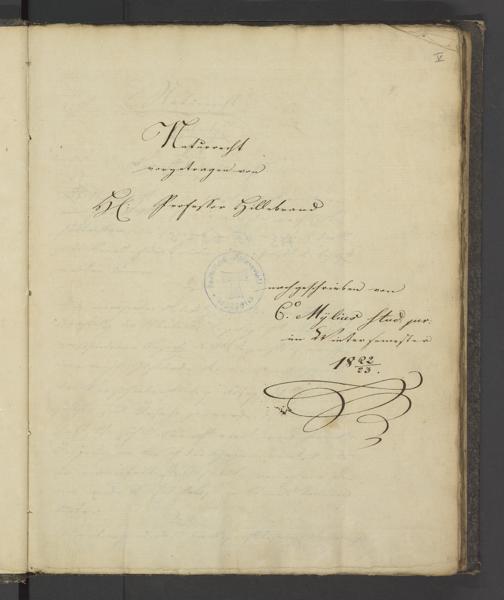 V
Naturrecht
vorgetragen von
H: Professor Hillebrand
nachgeschrieben von
C. Mylius stud. jur.
im Wintersemester
1822/23.